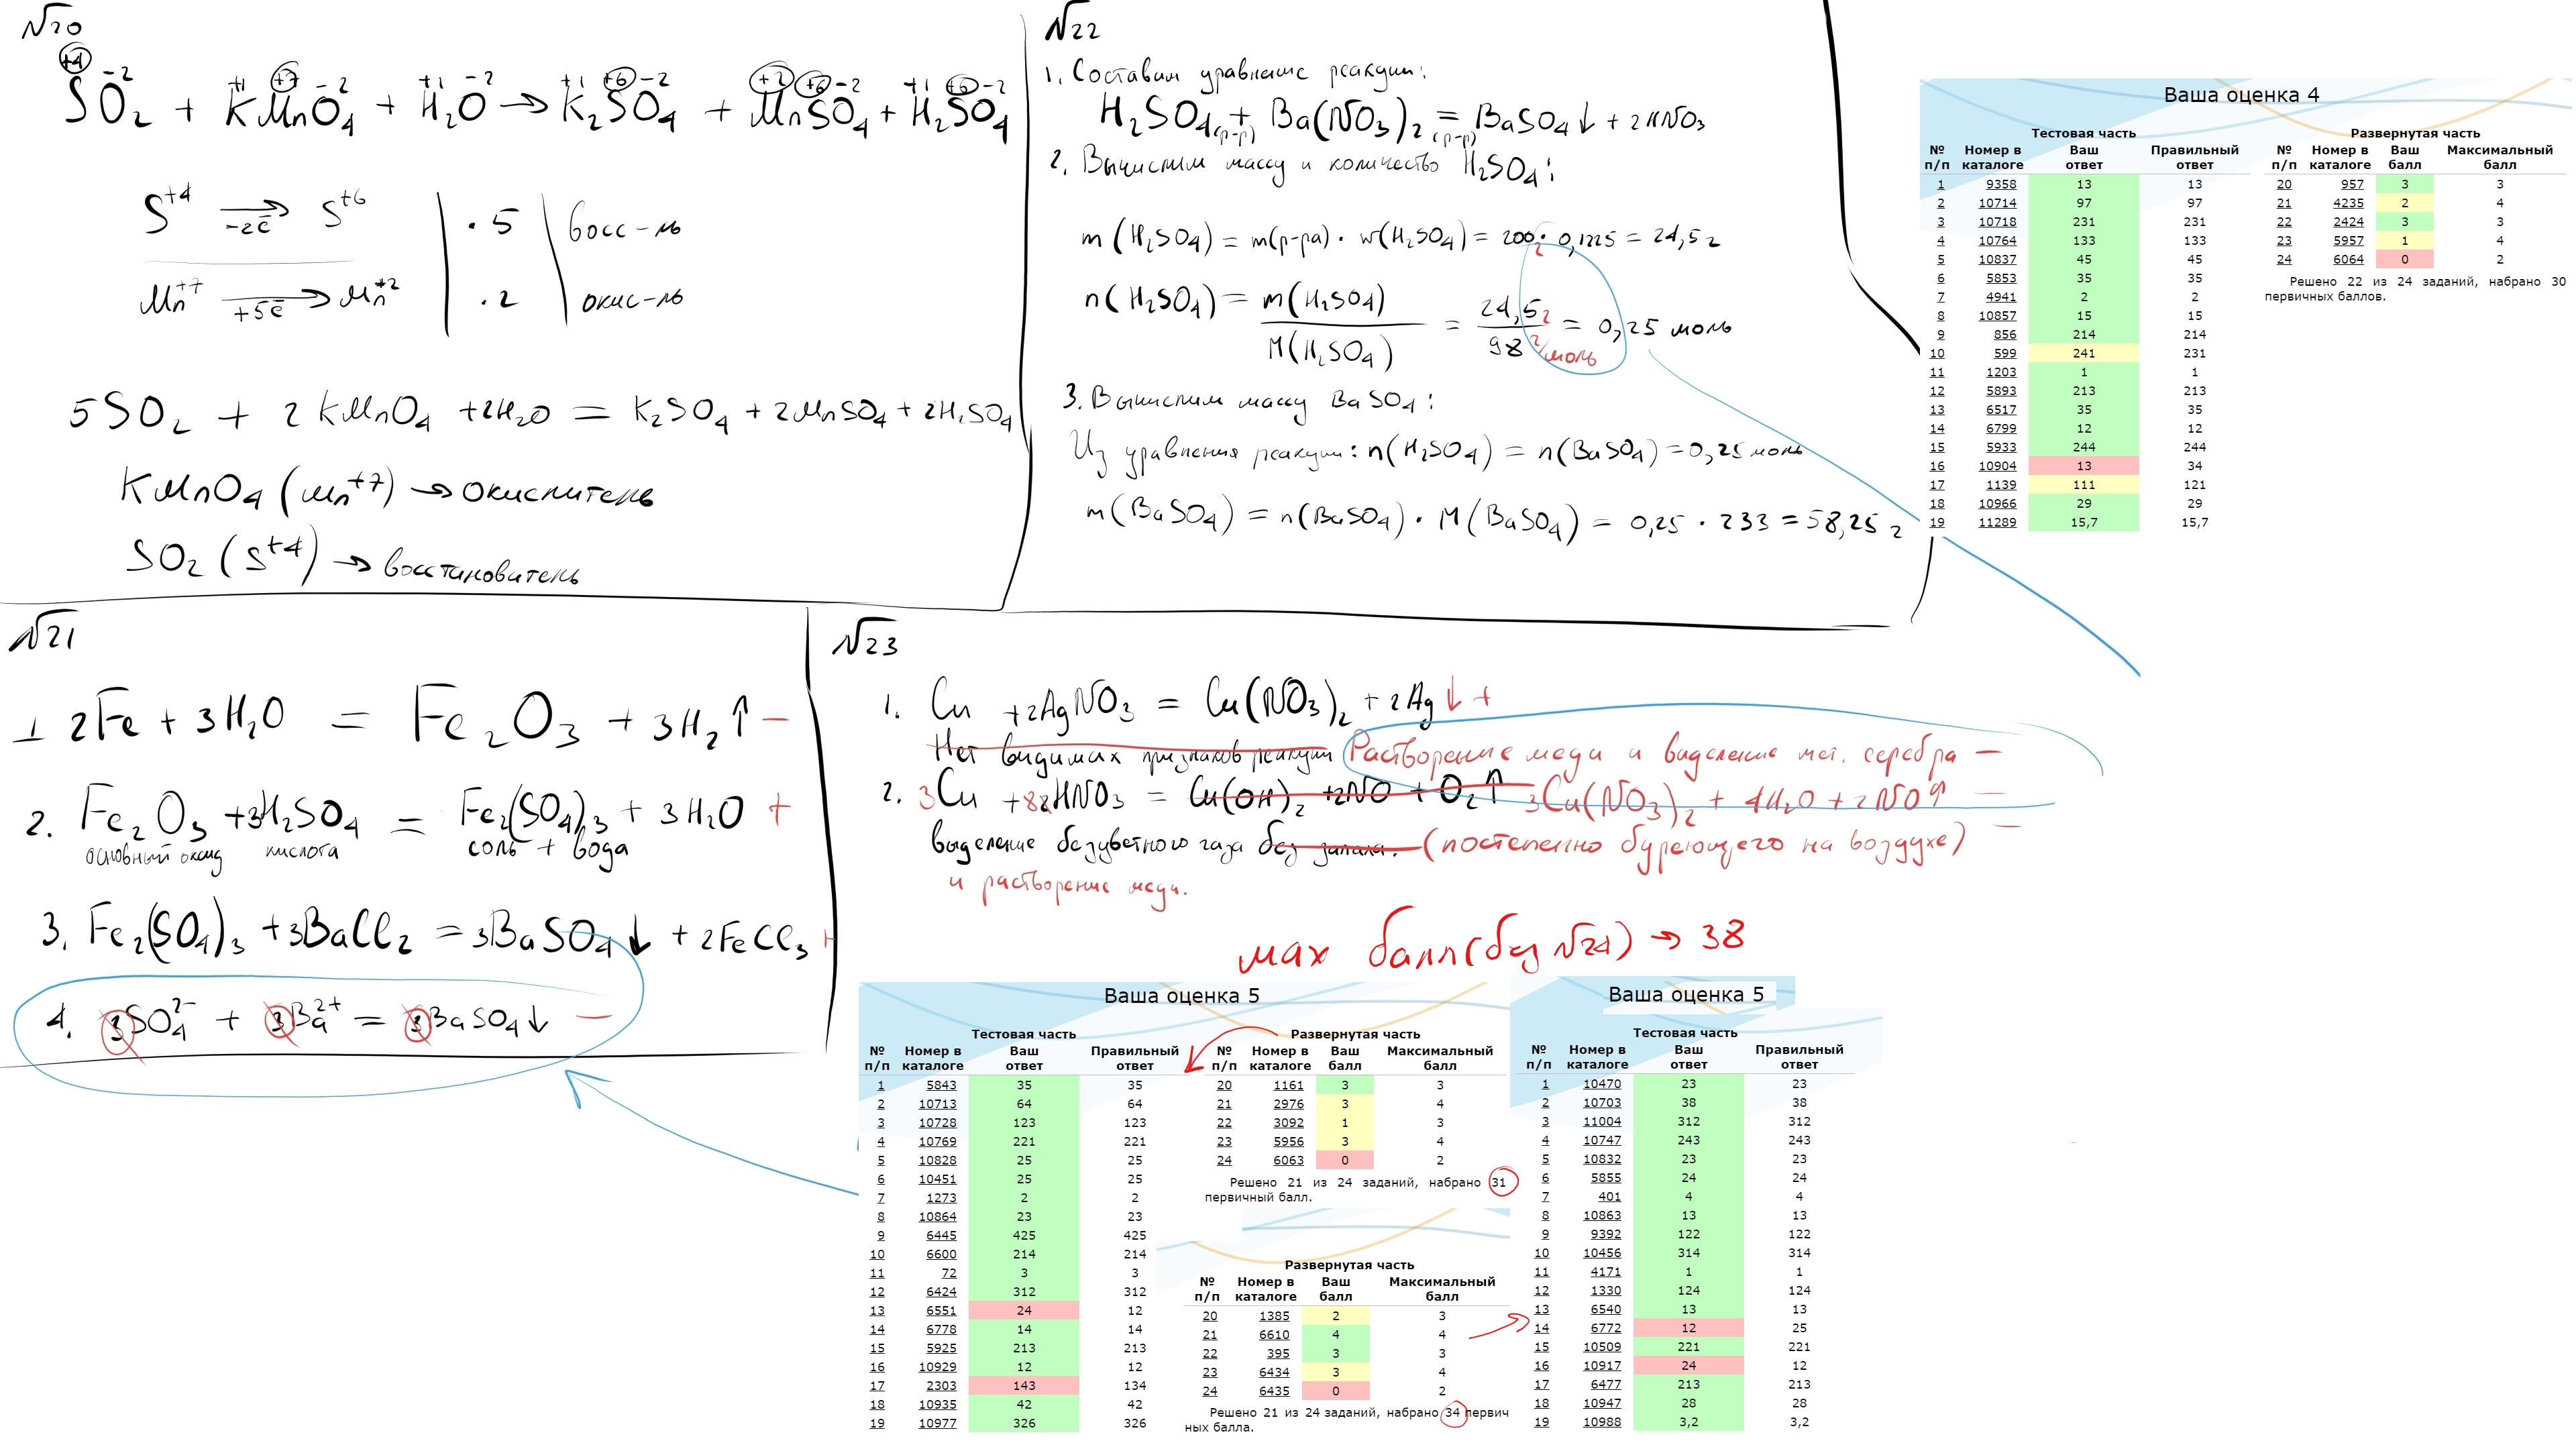 №20
+4 -2 +1 +7 -2 +1 -2 +1 +6 -2 +2 +6 -2 +1 +6 -2
SO₂ + KMnO₄ + H₂O → K₂SO₄ + MnSO₄ + H₂SO₄
S⁺⁴ →(-2ē) S⁺⁶ | ·5 | восс-ль
Mn⁺⁷ →(+5ē) Mn⁺² | ·2 | окис-ль
5SO₂ + 2KMnO₄ + 2H₂O = K₂SO₄ + 2MnSO₄ + 2H₂SO₄
KMnO₄ (Mn⁺⁷) → окислитель
SO₂ (S⁺⁴) → восстановитель
№22
1. Составим уравнение реакции:
H₂SO₄(р-р) + Ba(NO₃)₂(р-р) = BaSO₄↓ + 2HNO₃
2. Вычислим массу и количество H₂SO₄:
m(H₂SO₄) = m(р-ра) · w(H₂SO₄) = 200г · 0,1225 = 24,5 г
n(H₂SO₄) = m(H₂SO₄) / M(H₂SO₄) = 24,5г / 98 г/моль = 0,25 моль
3. Вычислим массу BaSO₄:
Из уравнения реакции: n(H₂SO₄) = n(BaSO₄) = 0,25 моль
m(BaSO₄) = n(BaSO₄) · M(BaSO₄) = 0,25 · 233 = 58,25 г
Ваша оценка 4
Тестовая часть
№ п/п Номер в каталоге Ваш ответ Правильный ответ
1 9358 13 13
2 10714 97 97
3 10718 231 231
4 10764 133 133
5 10837 45 45
6 5853 35 35
7 4941 2 2
8 10857 15 15
9 856 214 214
10 599 241 231
11 1203 1 1
12 5893 213 213
13 6517 35 35
14 6799 12 12
15 5933 244 244
16 10904 13 34
17 1139 111 121
18 10966 29 29
19 11289 15,7 15,7
Развернутая часть
№ п/п Номер в каталоге Ваш балл Максимальный балл
20 957 3 3
21 4235 2 4
22 2424 3 3
23 5957 1 4
24 6064 0 2
Решено 22 из 24 заданий, набрано 30
первичных баллов.
№21
1 2Fe + 3H₂O = Fe₂O₃ + 3H₂↑ −
2. Fe₂O₃ + 3H₂SO₄ = Fe₂(SO₄)₃ + 3H₂O +
основный оксид кислота соль + вода
3. Fe₂(SO₄)₃ + 3BaCl₂ = 3BaSO₄↓ + 2FeCl₃ +
4. 3SO₄²⁻ + 3Ba²⁺ = 3BaSO₄↓ −
№23
1. Cu + 2AgNO₃ = Cu(NO₃)₂ + 2Ag↓ +
Нет видимых признаков реакции Растворение меди и выделение мет. серебра −
2. 3Cu + 8HNO₃ = Cu(OH)₂ + 2NO + O₂↑ 3Cu(NO₃)₂ + 4H₂O + 2NO↑ −
выделение безцветного газа без запаха. (постепенно буреющего на воздухе) −
и растворение меди.
мах балл (без №24) → 38
Ваша оценка 5
Тестовая часть
№ п/п Номер в каталоге Ваш ответ Правильный ответ
1 5843 35 35
2 10713 64 64
3 10728 123 123
4 10769 221 221
5 10828 25 25
6 10451 25 25
7 1273 2 2
8 10864 23 23
9 6445 425 425
10 6600 214 214
11 72 3 3
12 6424 312 312
13 6551 24 12
14 6778 14 14
15 5925 213 213
16 10929 12 12
17 2303 143 134
18 10935 42 42
19 10977 326 326
Развернутая часть
№ п/п Номер в каталоге Ваш балл Максимальный балл
20 1161 3 3
21 2976 3 4
22 3092 1 3
23 5956 3 4
24 6063 0 2
Решено 21 из 24 заданий, набрано 31
первичный балл.
Развернутая часть
№ п/п Номер в каталоге Ваш балл Максимальный балл
20 1385 2 3
21 6610 4 4
22 395 3 3
23 6434 3 4
24 6435 0 2
Решено 21 из 24 заданий, набрано 34 первич
ных балла.
Ваша оценка 5
Тестовая часть
№ п/п Номер в каталоге Ваш ответ Правильный ответ
1 10470 23 23
2 10703 38 38
3 11004 312 312
4 10747 243 243
5 10832 23 23
6 5855 24 24
7 401 4 4
8 10863 13 13
9 9392 122 122
10 10456 314 314
11 4171 1 1
12 1330 124 124
13 6540 13 13
14 6772 12 25
15 10509 221 221
16 10917 24 12
17 6477 213 213
18 10947 28 28
19 10988 3,2 3,2